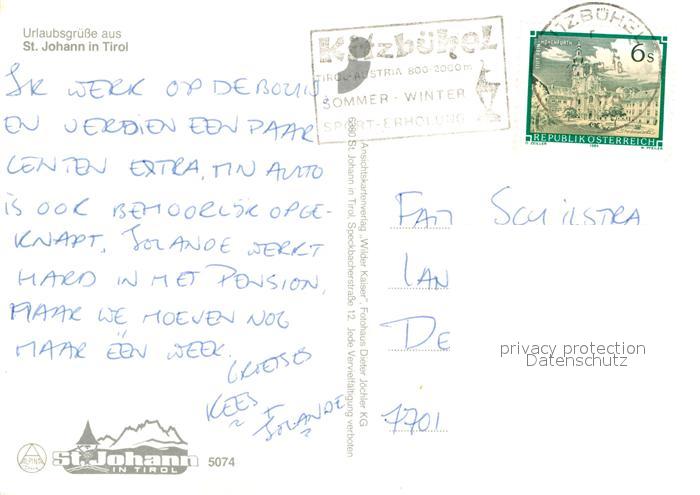 Urlaubsgrüße aus
St. Johann in Tirol
IK WERK OP DE BOUW,
EN VERDIEN EEN PAAR
CENTEN EXTRA, MIN AUTO
IS OOK BEHOORLIJK OPGE-
KNAPT. JOLANDE WERKT
HARD IN HET PENSION,
MAAR WE HOEVEN NOG
MAAR ÉÉN WEEK.
GROETJES
KEES
JOLANDE
St. Johann
IN TIROL
5074
ALPINA
Ansichtskartenverlag „Wilder Kaiser", Fotohaus Dieter Jöchler KG
6380 St. Johann in Tirol, Speckbacherstraße 12. Jede Vervielfältigung verboten
Kitzbühel
TIROL-AUSTRIA 800-2000m
SOMMER - WINTER
SPORT-ERHOLUNG
KITZBÜHEL
6s
REPUBLIK ÖSTERREICH
FAM SCHILSTRA
LAN
DE
7701
privacy protection
Datenschutz